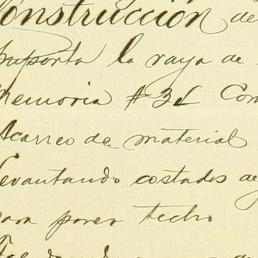 Construcción de
importa la raya de
Memoria #32 Con
Acarreo de material
Levantando costados de
para poner techo